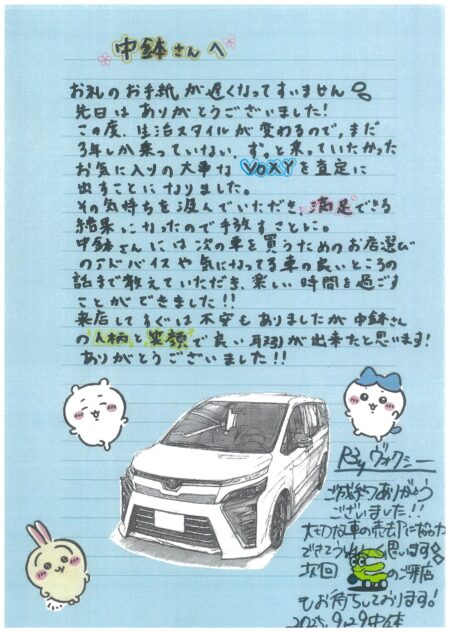 中鉢さんへ
お礼のお手紙が遅くなってすいません
先日はありがとうございました!
この度、生活スタイルが変わるので、まだ
3年しか乗っていない、ずっと乗っていたかった
お気に入りの大事な VOXY を査定に
出すことになりました。
その気持ちを汲んでいただき、満足できる
結果になったので手放すことに。
中鉢さんには次の車を買うためのお店選び
のアドバイスや気になってる車の良いところの
話まで教えていただき、楽しい時間を過ごす
ことができました!!
来店してすぐは不安もありましたが中鉢さん
の"人柄と笑顔"で良い取引が出来たと思います!
ありがとうございました!!
By ヴォクシー
ご成約ありがとう
ございました!!
大切な車の売却に協力
できてうれしく思います
次回 のご来店
もお待ちしております!
2025.9.29 中鉢